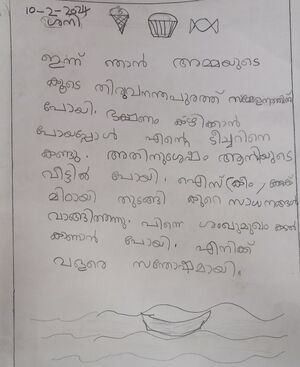 10-2-2024
ശനി
ഇന്ന് ഞാൻ അമ്മയുടെ
കൂടെ തിരുവനന്തപുരത്ത് സമ്മേളനത്തിന്
പോയി. ഭക്ഷണം കഴിക്കാൻ
പോയപ്പോൾ എന്റെ ടീച്ചറിനെ
കണ്ടു. അതിനുശേഷം ആന്റിയുടെ
വീട്ടിൽ പോയി. ഐസ്ക്രീം, കേക്ക്
മിഠായി തുടങ്ങി കുറെ സാധനങ്ങൾ
വാങ്ങിത്തന്നു. പിന്നെ ശംഖുമുഖം കടൽ
കാണാൻ പോയി. എനിക്ക്
വളരെ സന്തോഷമായി.